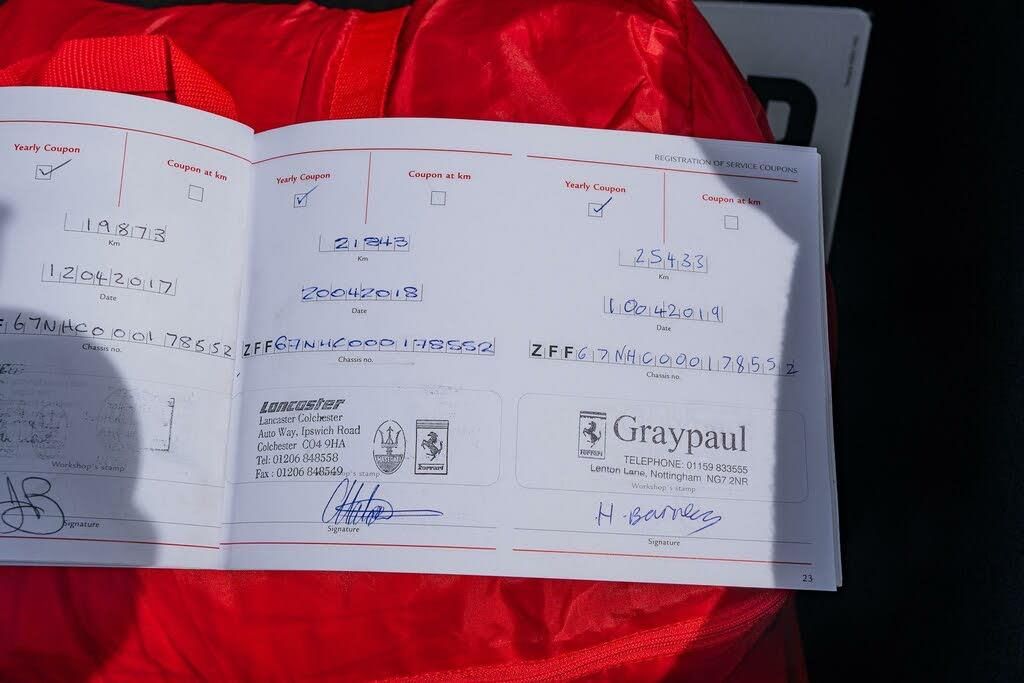 Yearly Coupon
Coupon at km
19873
Km
12042017
Date
F67NHC000178552
Chassis no.
Workshop's stamp
Signature
Yearly Coupon
Coupon at km
21843
Km
20042018
Date
ZFF67NHC000178552
Chassis no.
Lancaster
Lancaster Colchester
Auto Way, Ipswich Road
Colchester CO4 9HA
Tel: 01206 848558
Fax : 01206 848549
Workshop's stamp
MASERATI
Ferrari
Signature
REGISTRATION OF SERVICE COUPONS
Yearly Coupon
Coupon at km
25433
Km
10042019
Date
ZFF67NHC000178552
Chassis no.
Ferrari
Graypaul
TELEPHONE: 01159 833555
Lenton Lane, Nottingham NG7 2NR
Workshop's stamp
H. Barnes
Signature
23